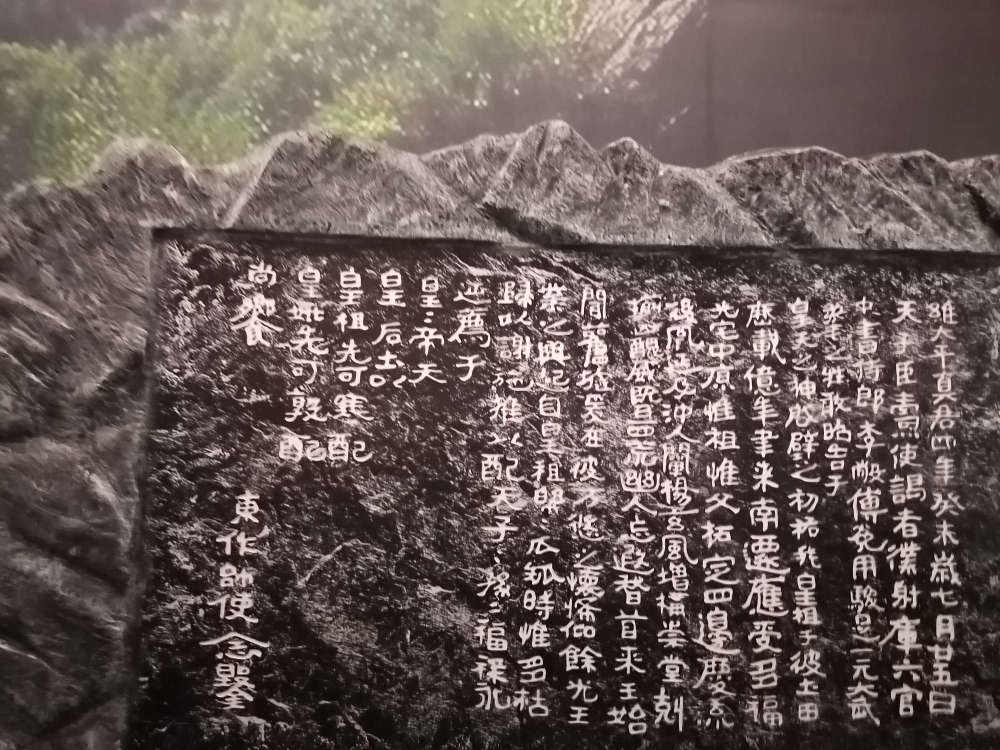 維太平真君四年癸未歲七月廿五日
天子臣燾使謁者僕射庫六官
中書侍郎李敞傅㝹用駿足一元大武
柔毛之牲敢昭告于
皇天之神啓辟之初祐我皇祖于彼土田
歷載億年聿來南遷應受多福
光宅中原惟祖惟父拓定四邊慶流
後胤延及沖人闡揚玄風增構崇堂剋
揃凶醜威暨四荒幽人忘遐稽首來王始
聞舊墟爰在彼方悠〻之懷希仰餘光王
業之興起自皇祖綿〻瓜瓞時惟多祜
歸以謝施推以配天子〻孫〻福祿永
延薦于
皇〻帝天
皇〻后土以
皇祖先可寒配
皇妣先可敦配
尚饗
東作帥使念鑿